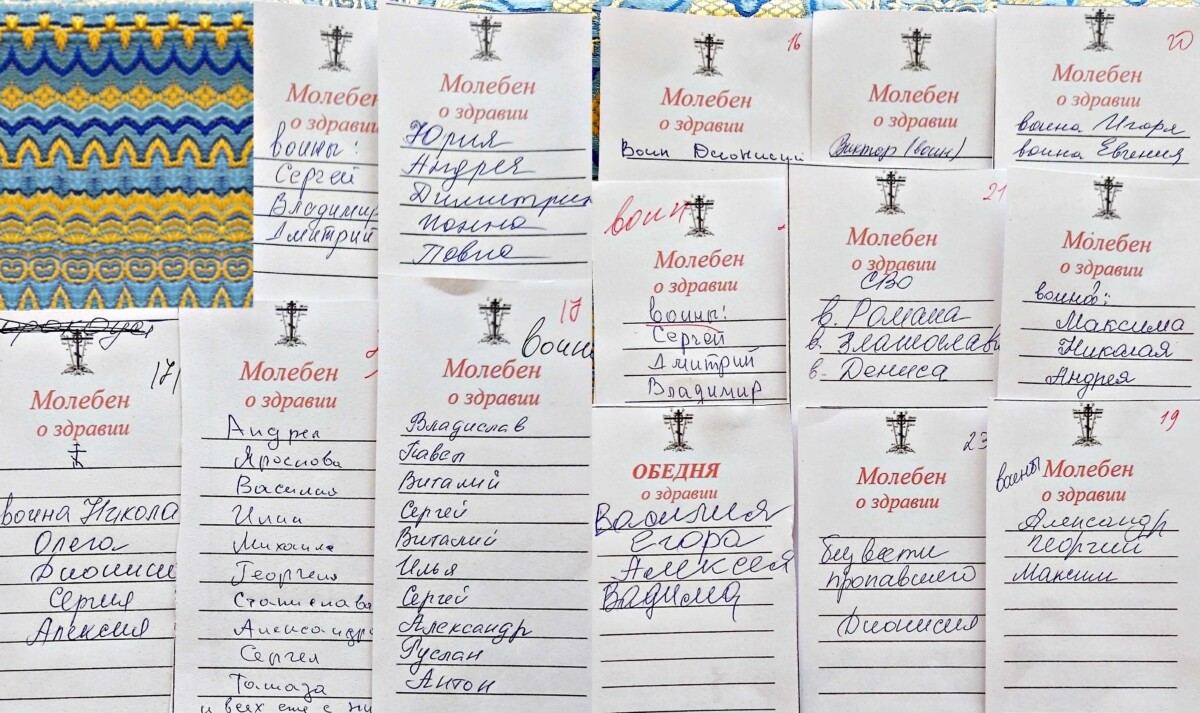 Молебен
о здравии
воины:
Сергей
Владимир
Дмитрий
Молебен
о здравии
Юрия
Андрея
Димитрия
Павла
16
Молебен
о здравии
Воин Дионисий
Молебен
о здравии
Виктор (воин)
20
Молебен
о здравии
воина Игоря
воина Евгения
воин
Молебен
о здравии
воины:
Сергей
Дмитрий
Владимир
21
Молебен
о здравии
СВО
в. Романа
в. Златослава
в. Дениса
Молебен
о здравии
воина:
Максима
Николая
Андрея
17
Молебен
о здравии
воина Никола
Олега
Дионисия
Сергия
Алексия
Молебен
о здравии
Андрея
Ярослава
Василия
Илии
Михаила
Георгия
Станислава
Александра
Сергея
и всех еще с ни
17
воин
Молебен
о здравии
Владислав
Павел
Виталий
Сергей
Виталий
Илья
Сергей
Александр
Руслан
Антон
ОБЕДНЯ
о здравии
Василия
Егора
Алексей
Вадима
23
Молебен
о здравии
безвести
пропавшего
Дионисия
19
воины
Молебен
о здравии
Александр
Георгий
Максим